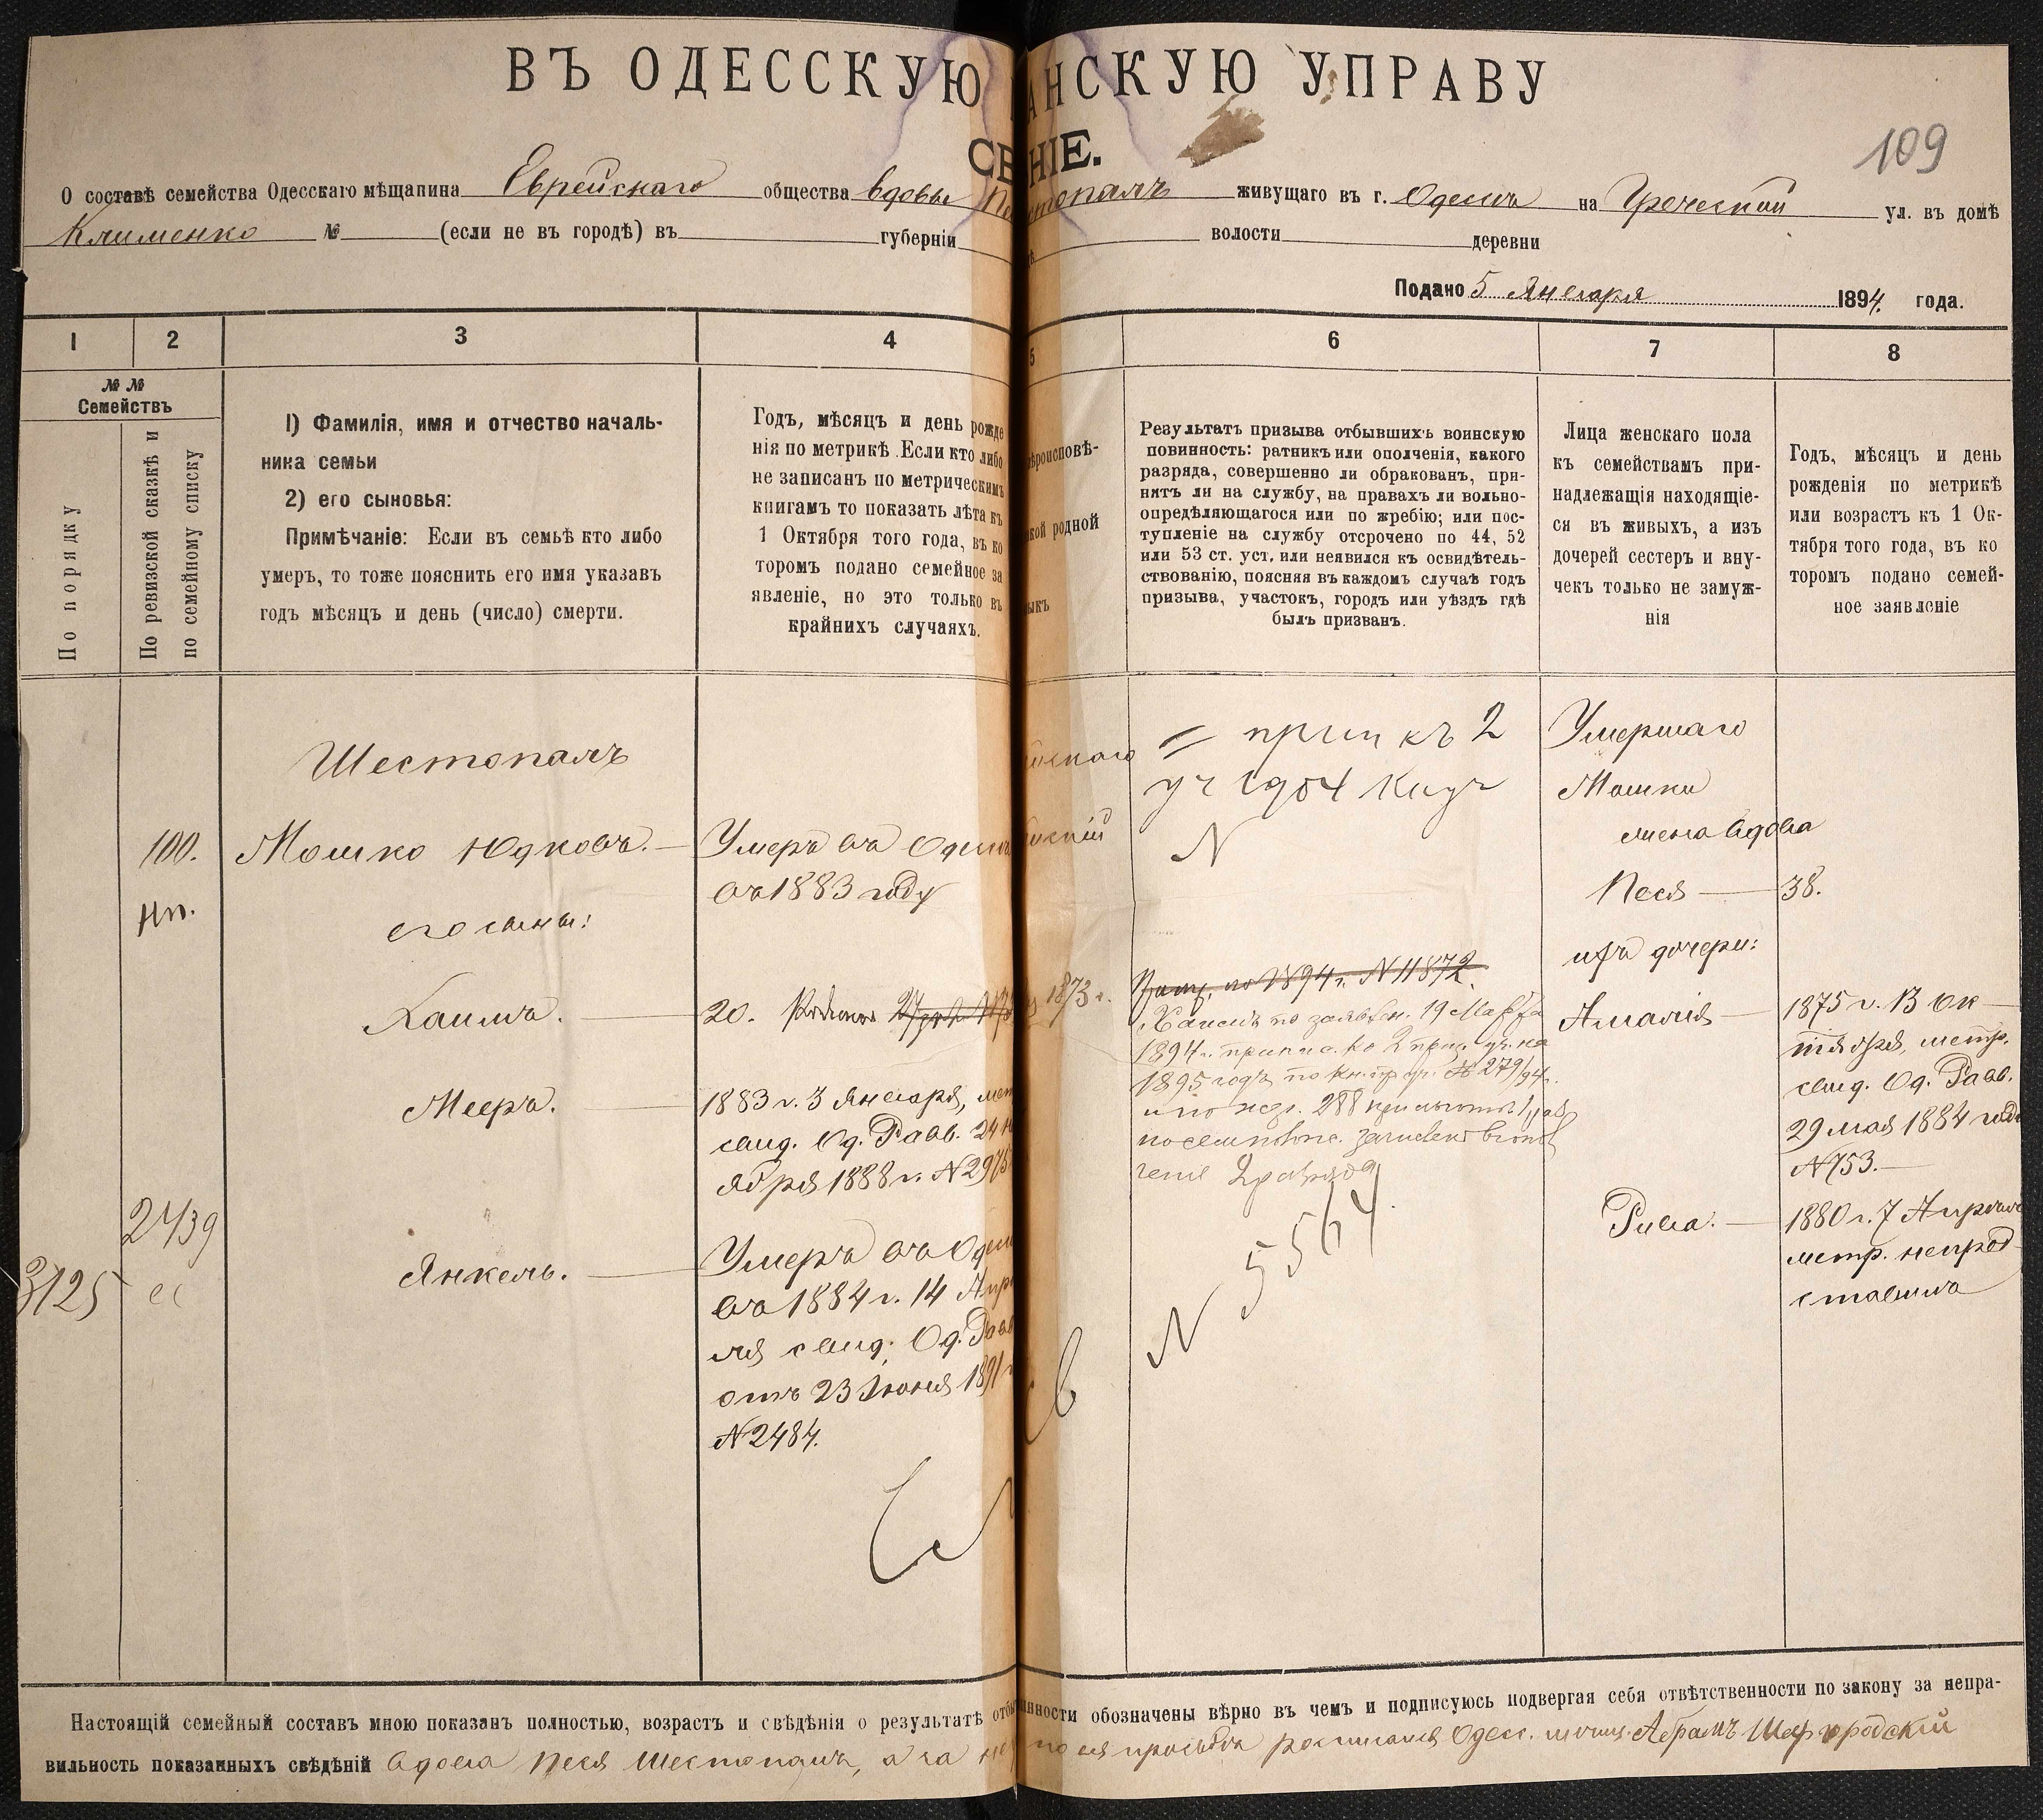 ВЪ ОДЕССКУЮ АНСКУЮ УПРАВУ
СЕ НІЕ.
109
О составѣ семейства Одесскаго мѣщанина Еврейскаго общества вдовы Шестопалъ живущаго въ г. Одессѣ на Греческой ул. въ домѣ
Клименко № (если не въ городѣ) въ губерніи волости деревни
Подано 5 Января 1894 года.
1 2 3 4 5 6 7 8
№ №
Семействъ
По порядку
По ревизской сказкѣ и
по семейному списку
1) Фамилія, имя и отчество началь-
ника семьи
2) его сыновья:
Примѣчаніе: Если въ семьѣ кто либо
умеръ, то тоже пояснить его имя указавъ
годъ мѣсяцъ и день (число) смерти.
Годъ, мѣсяцъ и день рожде
нія по метрикѣ. Если кто либо
не записанъ по метрическимъ
книгамъ то показать лѣта къ
1 Октября того года, въ ко
торомъ подано семейное за
явленіе, но это только въ
крайнихъ случаяхъ.
ѣроисповѣ-
кой родной
ыкъ
Результатъ призыва отбывшихъ воинскую
повинность: ратникъ или ополченія, какого
разряда, совершенно ли обракованъ, при-
нятъ ли на службу, на правахъ ли вольно-
опредѣляющагося или по жребію; или пос-
тупленіе на службу отсрочено по 44, 52
или 53 ст. уст. или неявился къ освидѣтель-
ствованію, поясняя въ каждомъ случаѣ годъ
призыва, участокъ, городъ или уѣздъ гдѣ
былъ призванъ.
Лица женскаго пола
къ семействамъ при-
надлежащія находящіе-
ся въ живыхъ, а изъ
дочерей сестеръ и вну-
чекъ только не замуж-
нія
Годъ, мѣсяцъ и день
рожденія по метрикѣ
или возрастъ къ 1 Ок-
тября того года, въ ко
торомъ подано семей-
ное заявленіе
100.
нп.
2439
3125
Шестопалъ
Мошко Юдковъ.
его сыны:
Хаимъ.
Мееръ.
Янкель.
Умеръ въ Одессѣ
въ 1883 году
20. 1873 г.
1883 г. 3 Января, мет
свид. Од. Равв. 24 н
ября 1888 г. № 2975
Умеръ въ Одес
въ 1884 г. 14 Апрѣ
ля свид. Од. Равв
отъ 23 Іюня 1891
№ 2484.
прип къ 2
уч 1904
N
по 1894 г. N 11872.
Хаимъ по заявлен. 19 Марта
1894 г. приписъ ко 2 приз. уч. на
1895 годъ по кн. пр уч. № 279/94 г.
N 5564
Умершаго
Мошки
жена вдова
Песя — 38.
ихъ дочери:
Амалія —
Рива. —
1875 г. 13 Ок-
тября, метр.
свид. Од. Равв.
29 мая 1884 года
№ 753. —
1880 г. 7 Апрѣля
метр. непред
ставила
Настоящій семейный составъ мною показанъ полностью, возрастъ и свѣдѣнія о результатѣ отбы инности обозначены вѣрно въ чемъ и подписуюсь подвергая себя отвѣтственности по закону за непра-
вильность показанныхъ свѣдѣній Вдова Песя Шестопалъ, а за нея по ея просьбѣ росписался Одесс. мѣщ. Абрамъ Шаргородскій